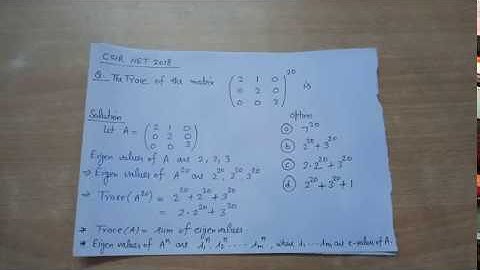 CSIR NET 2018
Q. The Trace of the matrix (2 1 0; 0 2 0; 0 0 3)^20 is
Solution
Let A = (2 1 0; 0 2 0; 0 0 3)
Eigen values of A are 2, 2, 3
⇒ Eigen values of A^20 are 2^20, 2^20, 3^20
⇒ Trace(A^20) = 2^20 + 2^20 + 3^20
= 2·2^20 + 3^20
* Trace(A) = sum of eigen values
* Eigen values of A^n are λ1^n, λ2^n ..... λm^n, where λ1....λm are e-value of A.
option
a 7^20
b 2^20 + 3^20
c 2·2^20 + 3^20
d 2^20 + 3^20 + 1